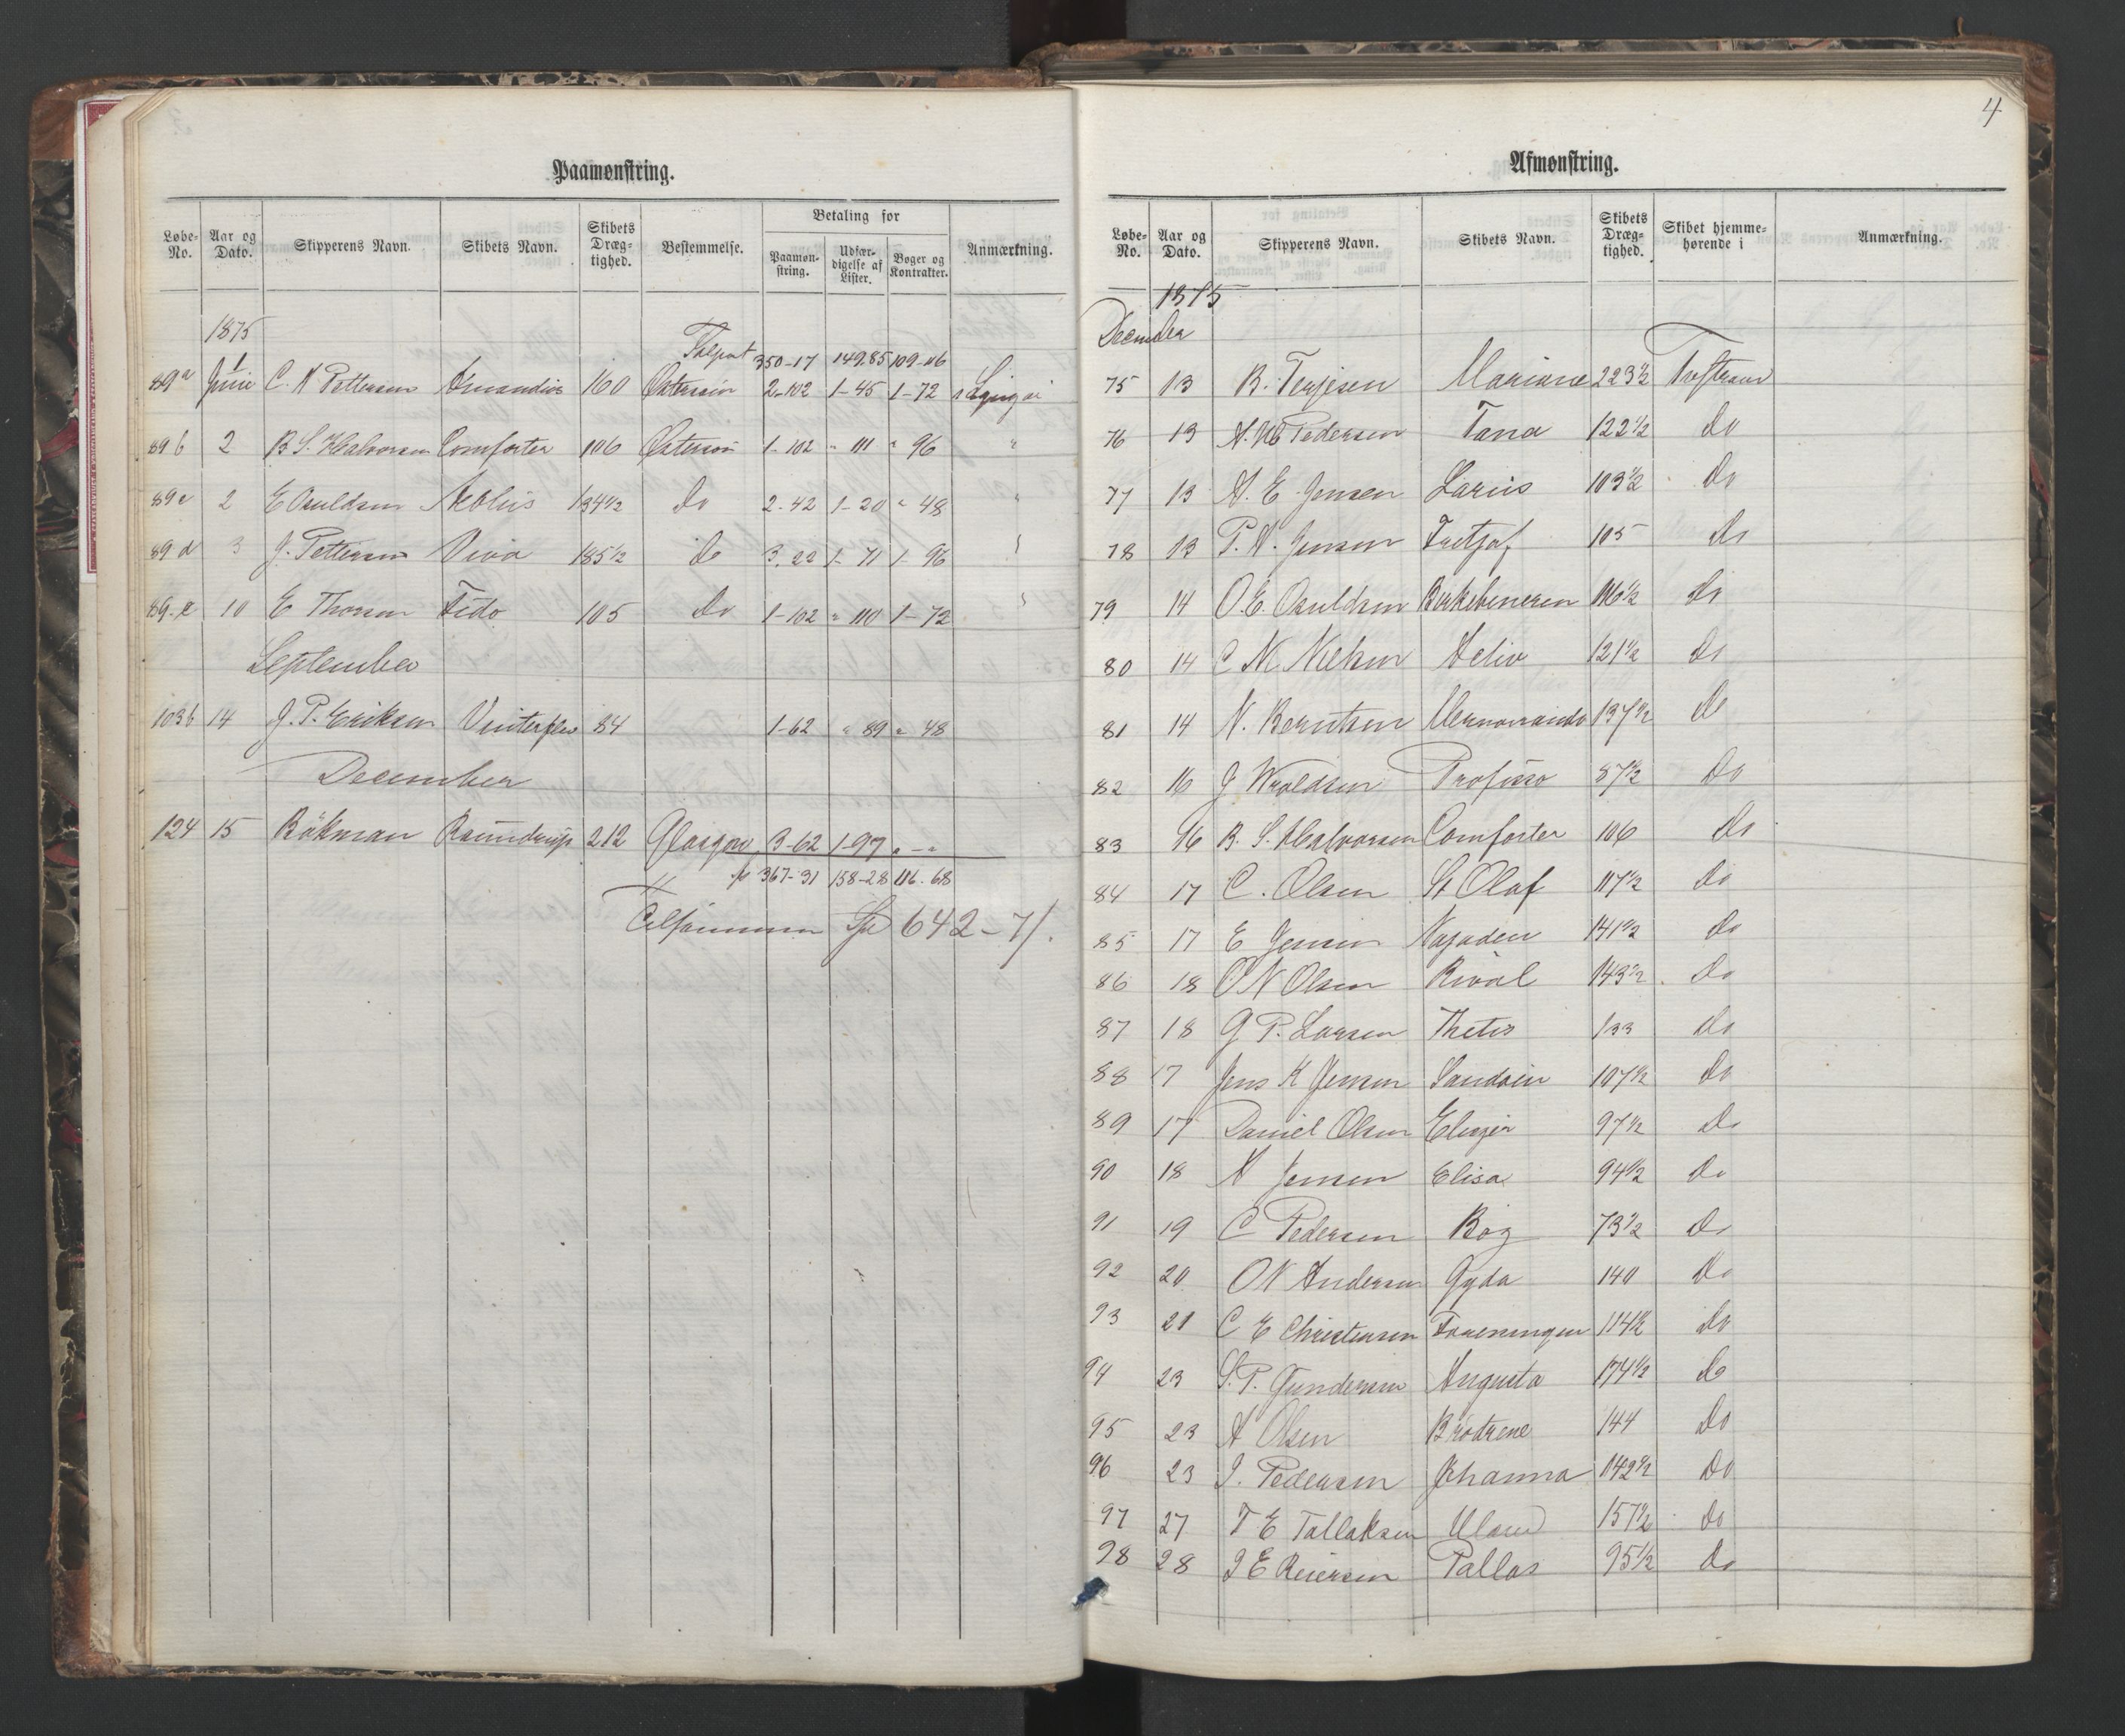 Paamønstring.
Løbe-No. Aar og Dato. Skipperens Navn. Skibets Navn. Skibets Dræg-tighed. Bestemmelse. Betaling for Paamøn-string. Udfær-digelse af Lister. Bøger og Kontrakter. Anmærkning.
1875
350-17 149.85 109-06
89a 1 Juni C. N Pettersen 160 Østersøin 2-102 1-45 1-72
89b 2 B S. Halvorsen Comforter 106 Østersøi 1-102 " 111 " 96 "
89c 2 E Osuldsen Æolus 134½ Do 2-42 1-20 " 48 "
89d 3 J. Pettersen Viva 185½ do 3.22 1-71 1-96
89-e 10 E Thorsen Fido 105 Do 1-102 " 110 1-72
September
103b 14 J. P. Eriksen 84 1-62 " 89 " 48
December
124 15 Bökman 212 Glasgow 3-62 1-97 "-"
367-31 158-28 116.68
Tilsammen Sp 642-71.
4
Afmønstring.
Løbe-No. Aar og Dato. Skipperens Navn. Skibets Navn. Skibets Dræg-tighed. Skibet hjemme-hørende i Anmærkning.
1875
December
75 13 B. Terjesen Mariane 223½
76 13 Pedersen Tana 122½ do
77 13 A. E. Jensen Larius 103½ Do
78 13 P. N. Jensen 105 Do
79 14 O. E. Osuldsen Birkebeneren 116½ Do
80 14 C N. Nielsen Activ 121½ Do
81 14 N. Berntsen 137½ do
82 16 J Wroldsen 87½ Do
83 16 B. S. Halvorsen Comforter 106 Do
84 17 C. Olsen St Olaf 117½ Do
85 17 E Jensen Najaden 141½ Do
86 18 O N Olsen Rival 143½ Do
87 18 G P. Larsen Thetis 133 Do
88 17 Jens K Jensen 107½ Do
89 17 Daniel Olsen 97½ Do
90 18 N Jensen Elisa 94½ Do
91 19 C Pedersen 73½ Do
92 20 O N Andersen Gyda 140 Do
93 21 C E Christensen Foreningen 114½ Do
94 23 S. P. Gundersen Augusta 174½ do
95 23 A Olsen Brødrene 144 Do
96 23 J. Pedersen Johanna 142½ Do
97 27 T E Tallaksen 157½ Do
98 28 J E Reiersen Pallas 95½ Do